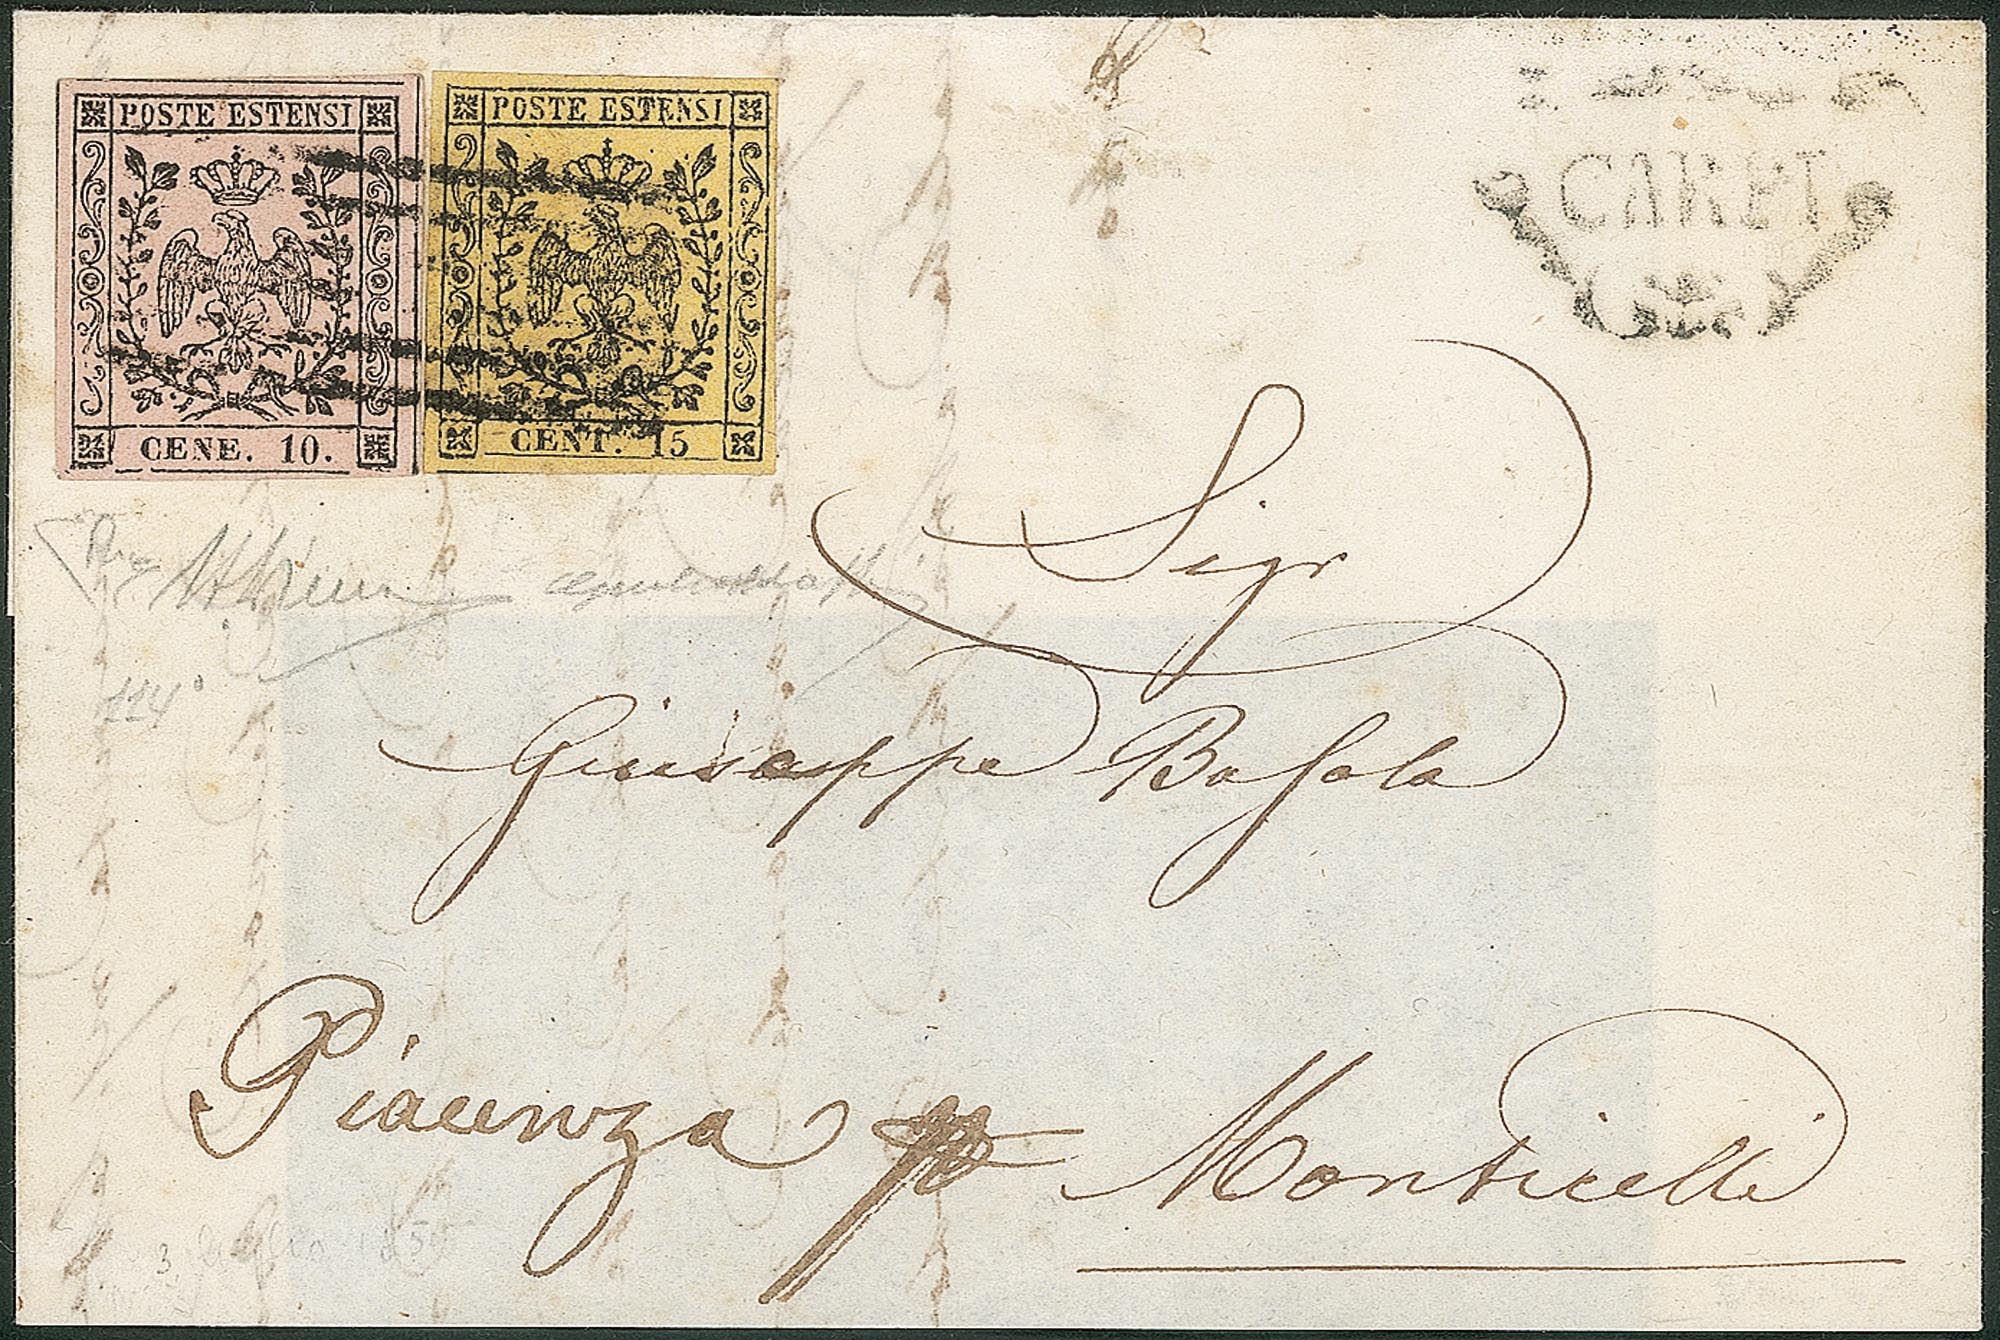 POSTE ESTENSI
CENE. 10.
POSTE ESTENSI
CENT. 15
CARPI
Sigr
Giuseppe Basola
Piacenza pp Monticelli
114°
3 Luglio 185